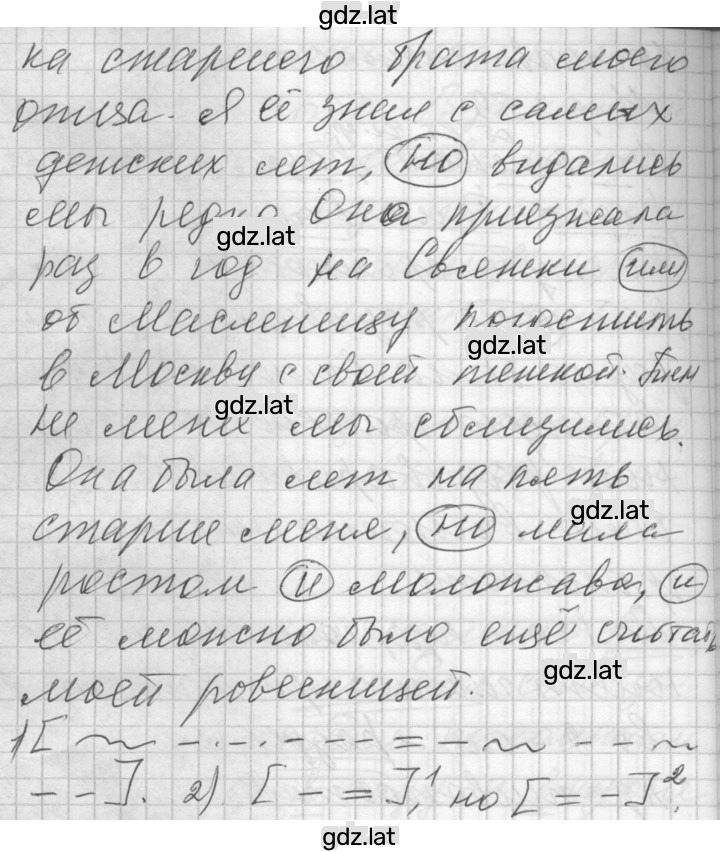 gdz.lat
ка старшего брата моего
отца. Я её знал с самых
детских лет, но видались
мы редко Она приезжала
gdz.lat
раз в год на Святки или
от Масленицу погостить
gdz.lat
в Москву с своей тёткой. Тем
gdz.lat
не менее мы сблизились.
Она была лет на пять
gdz.lat
старше меня, но мила
ростом и моложава, и
её можно было ещё считать
gdz.lat
моей ровесницей.
1) [ ~ – · – · – · – – – = – ~ – – ~
– – ]. 2) [ – = ],¹ но [ = – ]².
gdz.lat